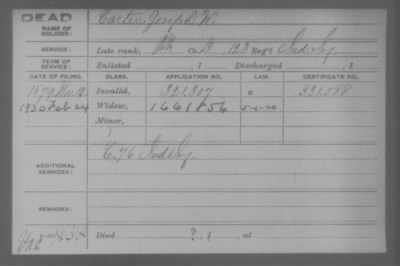 DEAD
NAME OF SOLDIER: Carter, Joseph W.
SERVICE: Late rank, Co. 123 Reg't Ind Inf
TERM OF SERVICE: Enlisted , 1 Discharged , 1
DATE OF FILING. CLASS. APPLICATION NO. LAW. CERTIFICATE NO.
1879 Invalid, 321307 331588
1930 Feb 24 Widow, 1661856
Minor,
ADDITIONAL SERVICES: Ind Inf
REMARKS:
Died ? , 1 , at